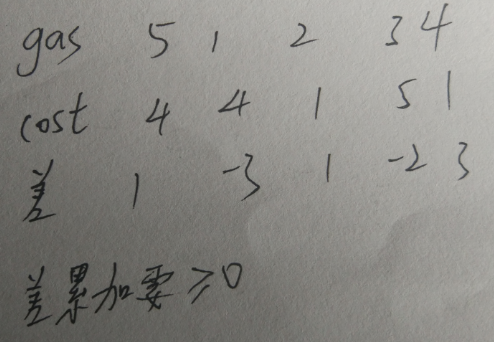 gas 5 1 2 3 4
cost 4 4 1 5 1
差 1 -3 1 -2 3
差累加要≥0